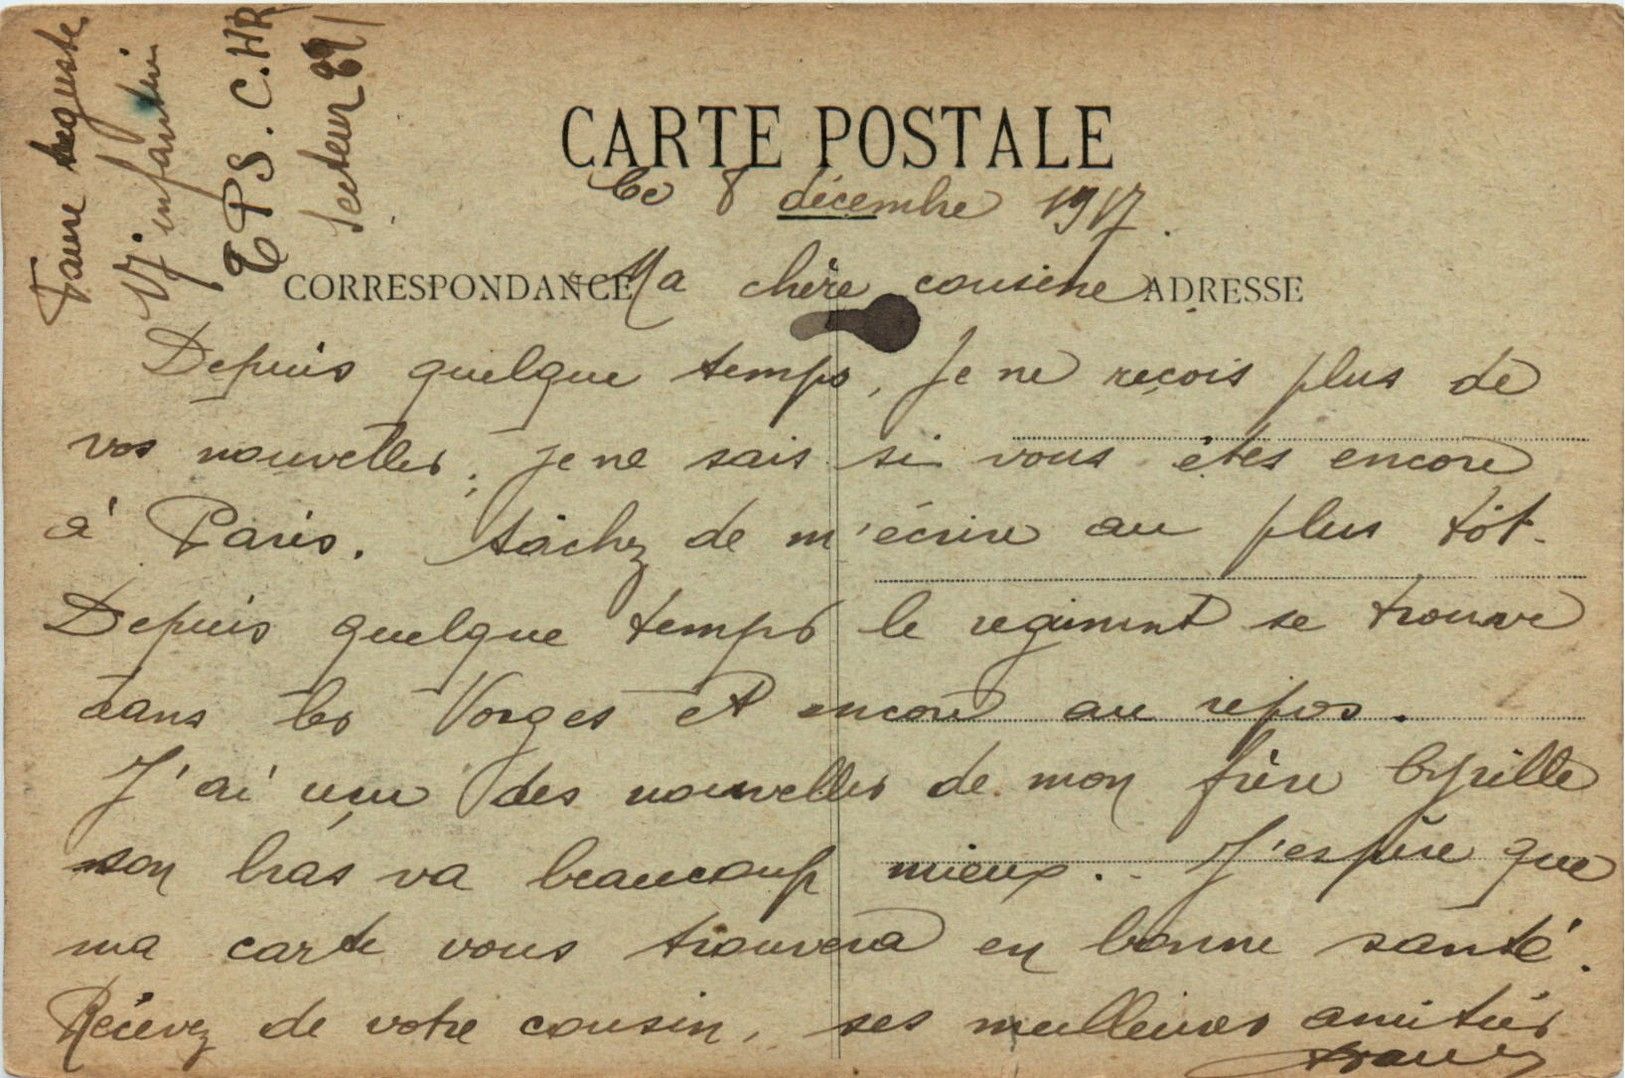 Faure Auguste
17. infanterie
T P S . C.HR
Secteur 89
CARTE POSTALE
Le 8 décembre 1917.
CORRESPONDANCE
Ma chère cousine
ADRESSE
Depuis quelque temps, je ne reçois plus de
vos nouvelles, je ne sais si vous êtes encore
à Paris. tâchez de m'écrire au plus tôt.
Depuis quelque temps le regiment se trouve
dans les Vosges et encore au repos.
J'ai reçu des nouvelles de mon frère Cyrille
son bras va beaucoup mieux. J'espère que
ma carte vous trouvera en bonne santé.
Récevez de votre cousin, ses meilleures amitiés